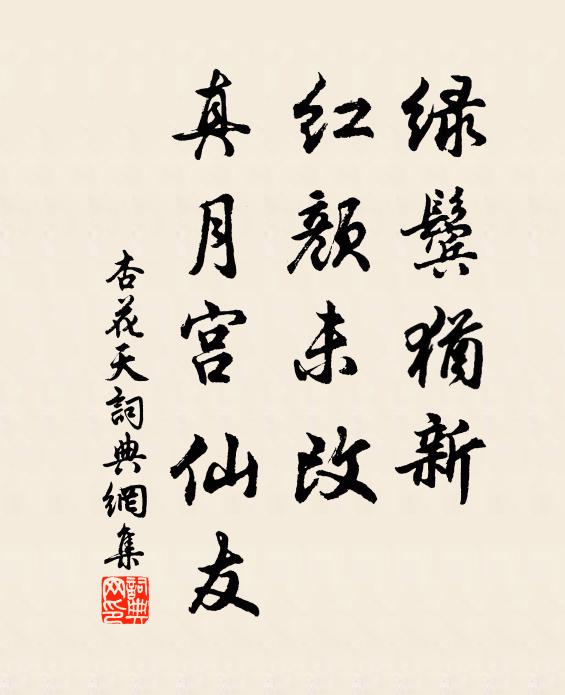 绿鬓犹新
红颜未改
真月宫仙友
杏花天詞典網集
詞典网印